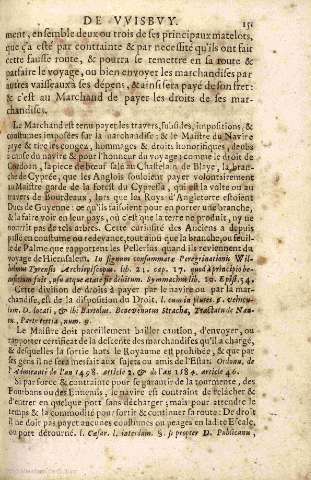 DE VVISBVY. 151
ment, ensemble deux ou trois de ses principaux matelots,
que ça esté par contrainte & par necessité qu'ils ont fait
cette fausse route, & pourra se remettre en sa route &
parfaire le voyage, ou bien envoyer les marchandises par
autres vaisseaux à ses dépens, & ainsi sera payé de son fret:
& c'est au Marchand de payer les droits de ses mar-
chandises.
Le Marchand est tenu payer les travers, subsides, impositions, &
coustumes imposées sur la marchandise; & le Maistre du Navire
paye & tire les congez, hommages & droits honorifiques, deubs
à cause du navire & pour l'honneur du voyage; comme le droit de
Cordoan, la piece de bœuf salé au Chastelain de Blaye, la bran-
che de Cyprée, que les Anglois souloient payer volontairement
au Maistre garde de la Forest du Cypressa, qui est la volte ou au
travers de Bourdeaux, lors que les Roys d'Angleterre estoient
Ducs de Guyenne: ce qu'ils faisoient pour en porter une branche,
& la faire voir en leur pays, où c'est que la terre ne produit, ny ne
nourrit pas de tels arbres. Cette curiosité des Anciens a depuis
passé en coustume ou redevance, tout ainsi que la branche, ou feuil-
le de Palme que rapportent les Pellerins quand ils reviennent du
voyage de Hierusalem. In signum consummatæ Peregrinationis Wil-
lelmus Tyrensis Archiepiscopus, lib. 21. cap. 17. quod à principio be-
neficium fuit, usu atque ætate fit debitum. Symmachus lib. 10. Epist. 54.
Cette division de droits à payer par le navire ou par la mar-
chandise, est de la disposition du Droit. l. cum in plures §. vehicu-
lum. D. locati, & ibi Bartolus. Benevenutus Stracha, Tractatu de Nau-
tis, Parte tertia, num. 9.
Le Maistre doit pareillement bailler caution, d'envoyer, ou
rapporter certificat de la descente des marchandises qu'il a chargé,
& desquelles la sortie hors le Royaume est prohibée, & que par
ses gens il ne sera mesfait aux sujets ou amis de l'Estat. Ordon. de
l'Admirauté de l'an 1498. article 2. & de l'an 1584. article 46.
Si par force & contrainte pour se garantir de la tourmente, des
Fourbans ou des Ennemis, le navire est contraint de relâcher &
d'entrer en quelque port sans décharger; mais pour attendre le
temps & la commodité pour sortir & continuer sa route: De droit
il ne doit pas payer aucunes coustumes ou peages en ladite Escale,
ou port détourné. l. Cæsar. l. interdum. §. si propter D. Publicanis,